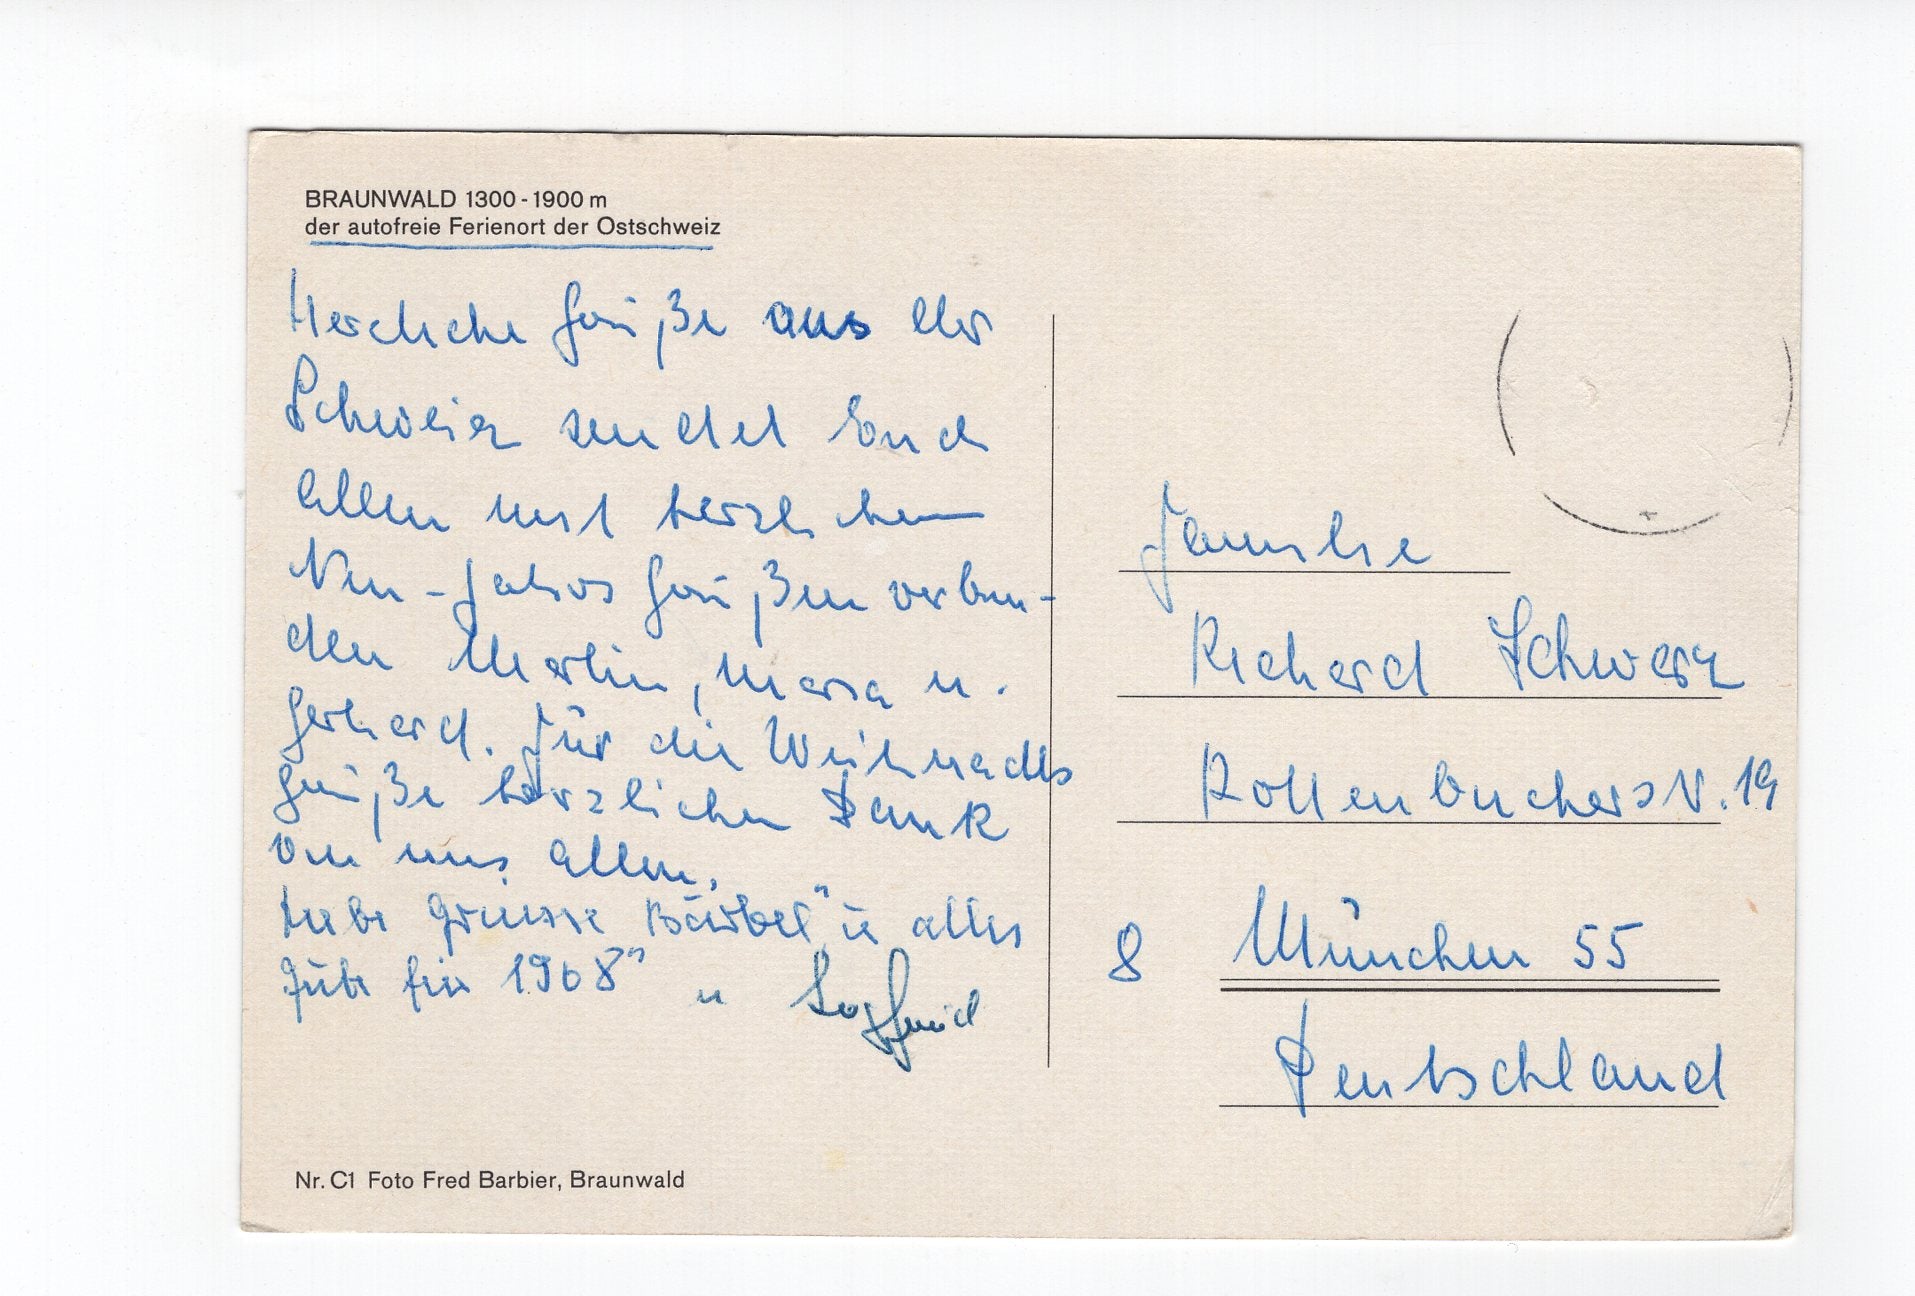 BRAUNWALD 1300 - 1900 m
der autofreie Ferienort der Ostschweiz
Herzliche Grüße aus der
Schweiz sendet Euch
allen mit herzlichen
Neu-Jahrs Grüßen verbun-
den Martin, Maria u.
Gerhard. Für die Weihnachts
grüße herzlichen Dank
von uns allen.
Liebe Grüsse Bärbel " u alles
Gute für 1968 "
u
Familie
Richard Schwarz
Rottenbucherstr. 19
8 München 55
Deutschland
Nr. C1 Foto Fred Barbier, Braunwald